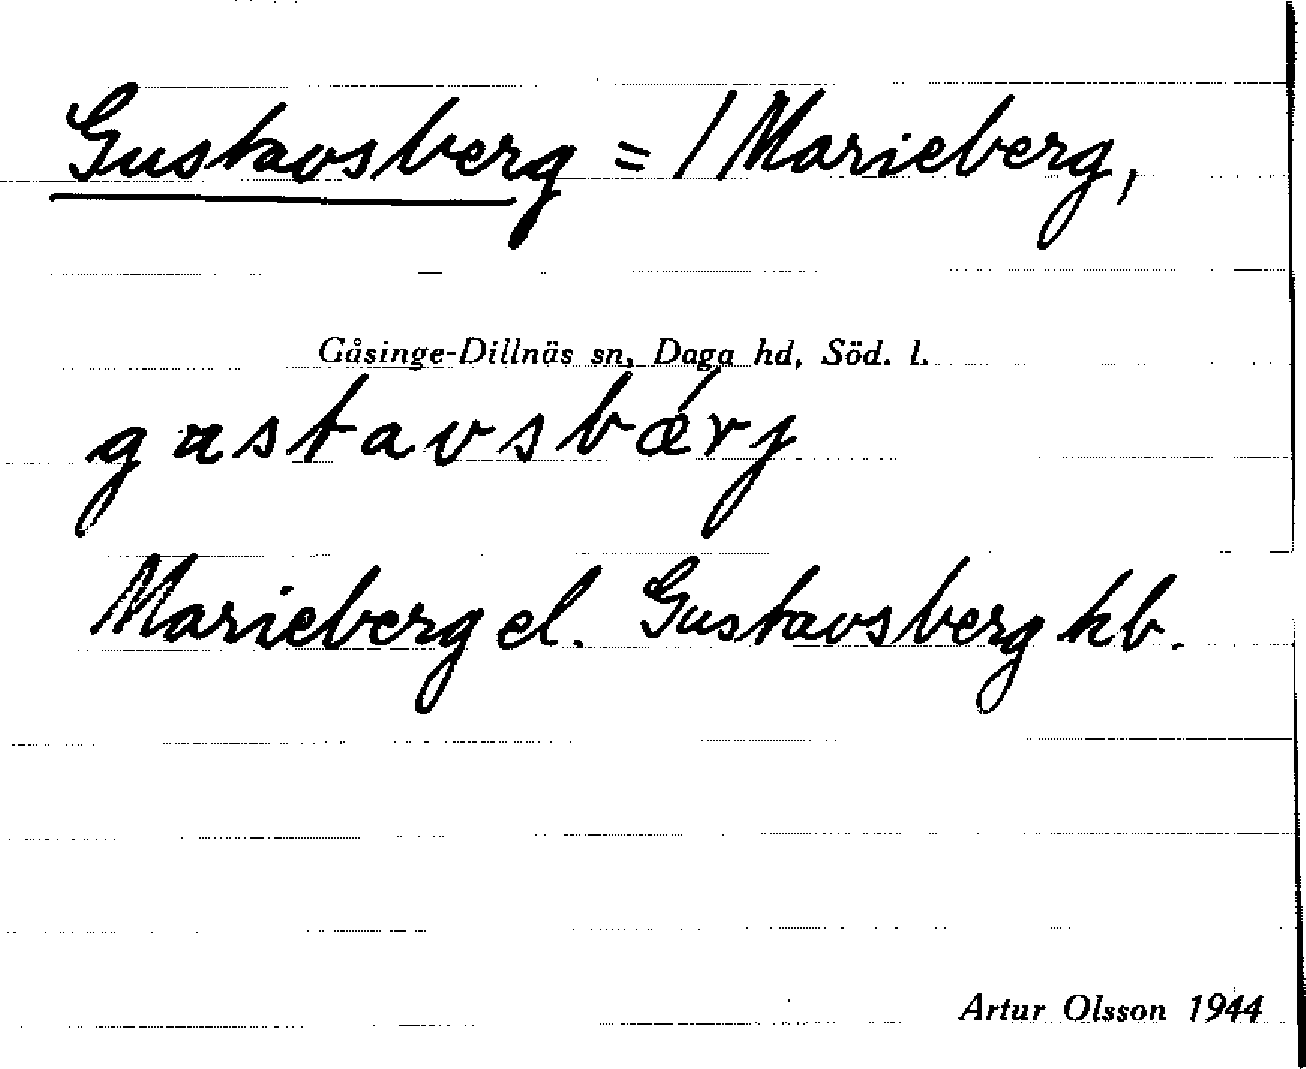 Gustavsberg = / Marieberg,
Gåsinge-Dillnäs sn, Daga hd, Söd. l.
gustavsbǽrj
Marieberg el. Gustavsberg hb.
Artur Olsson 1944